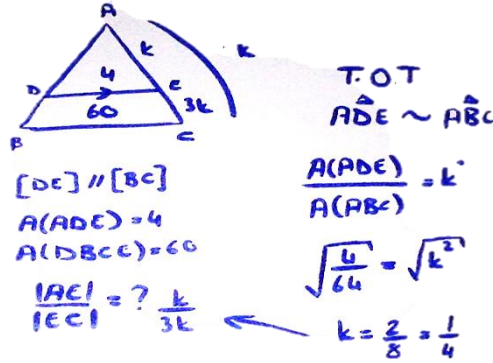 A
k
k
4
D
E
60
3k
B
C
[DE] // [BC]
A(ADE) = 4
A(DBCE) = 60
|AE| / |EC| = ? k / 3k
T.O.T
ADE ~ ABC
A(ADE) / A(ABC) = k
√4/64 = √k²
k = 2/8 = 1/4